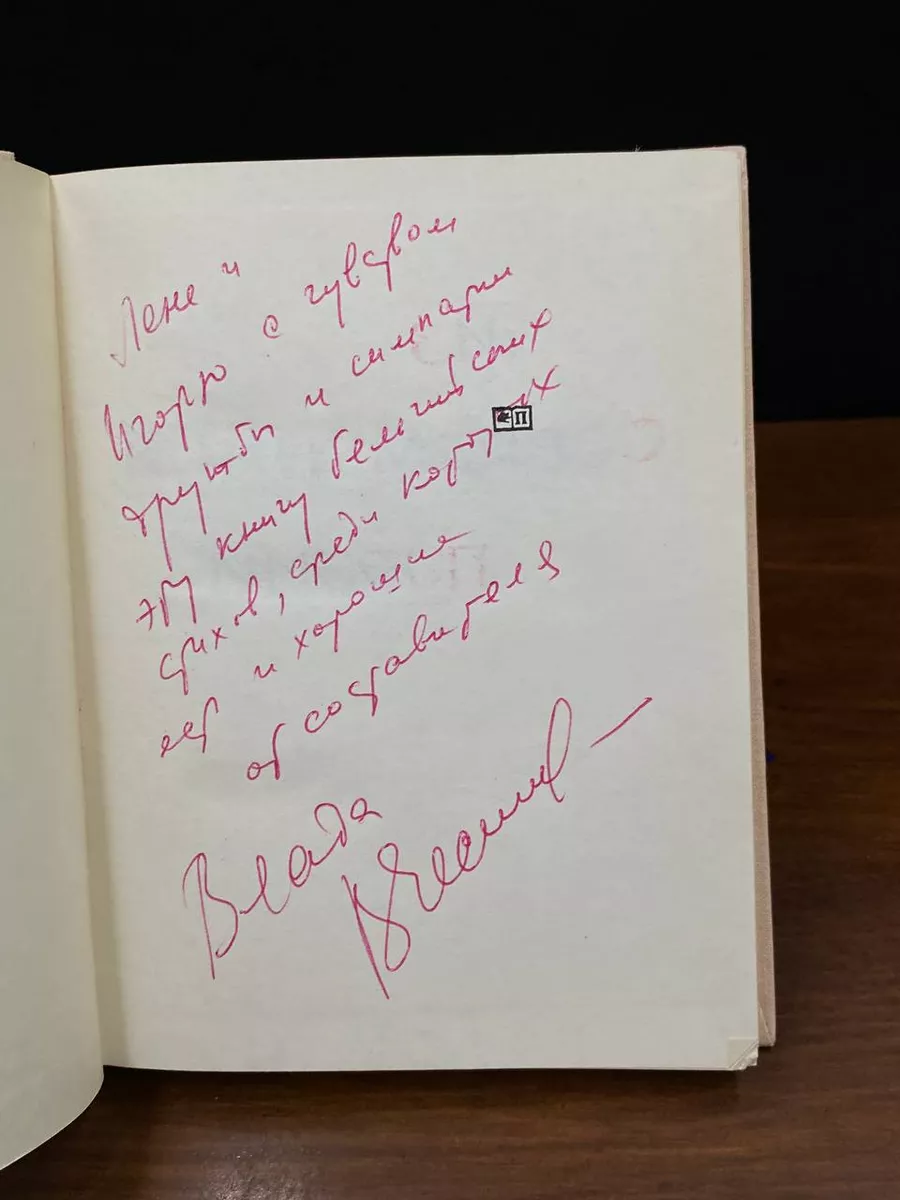 Лене и
Игорю с чувством
дружбы и симпатии
эту книгу бельгийских
стихов, среди которых
есть и хорошие
от составителя
Влада